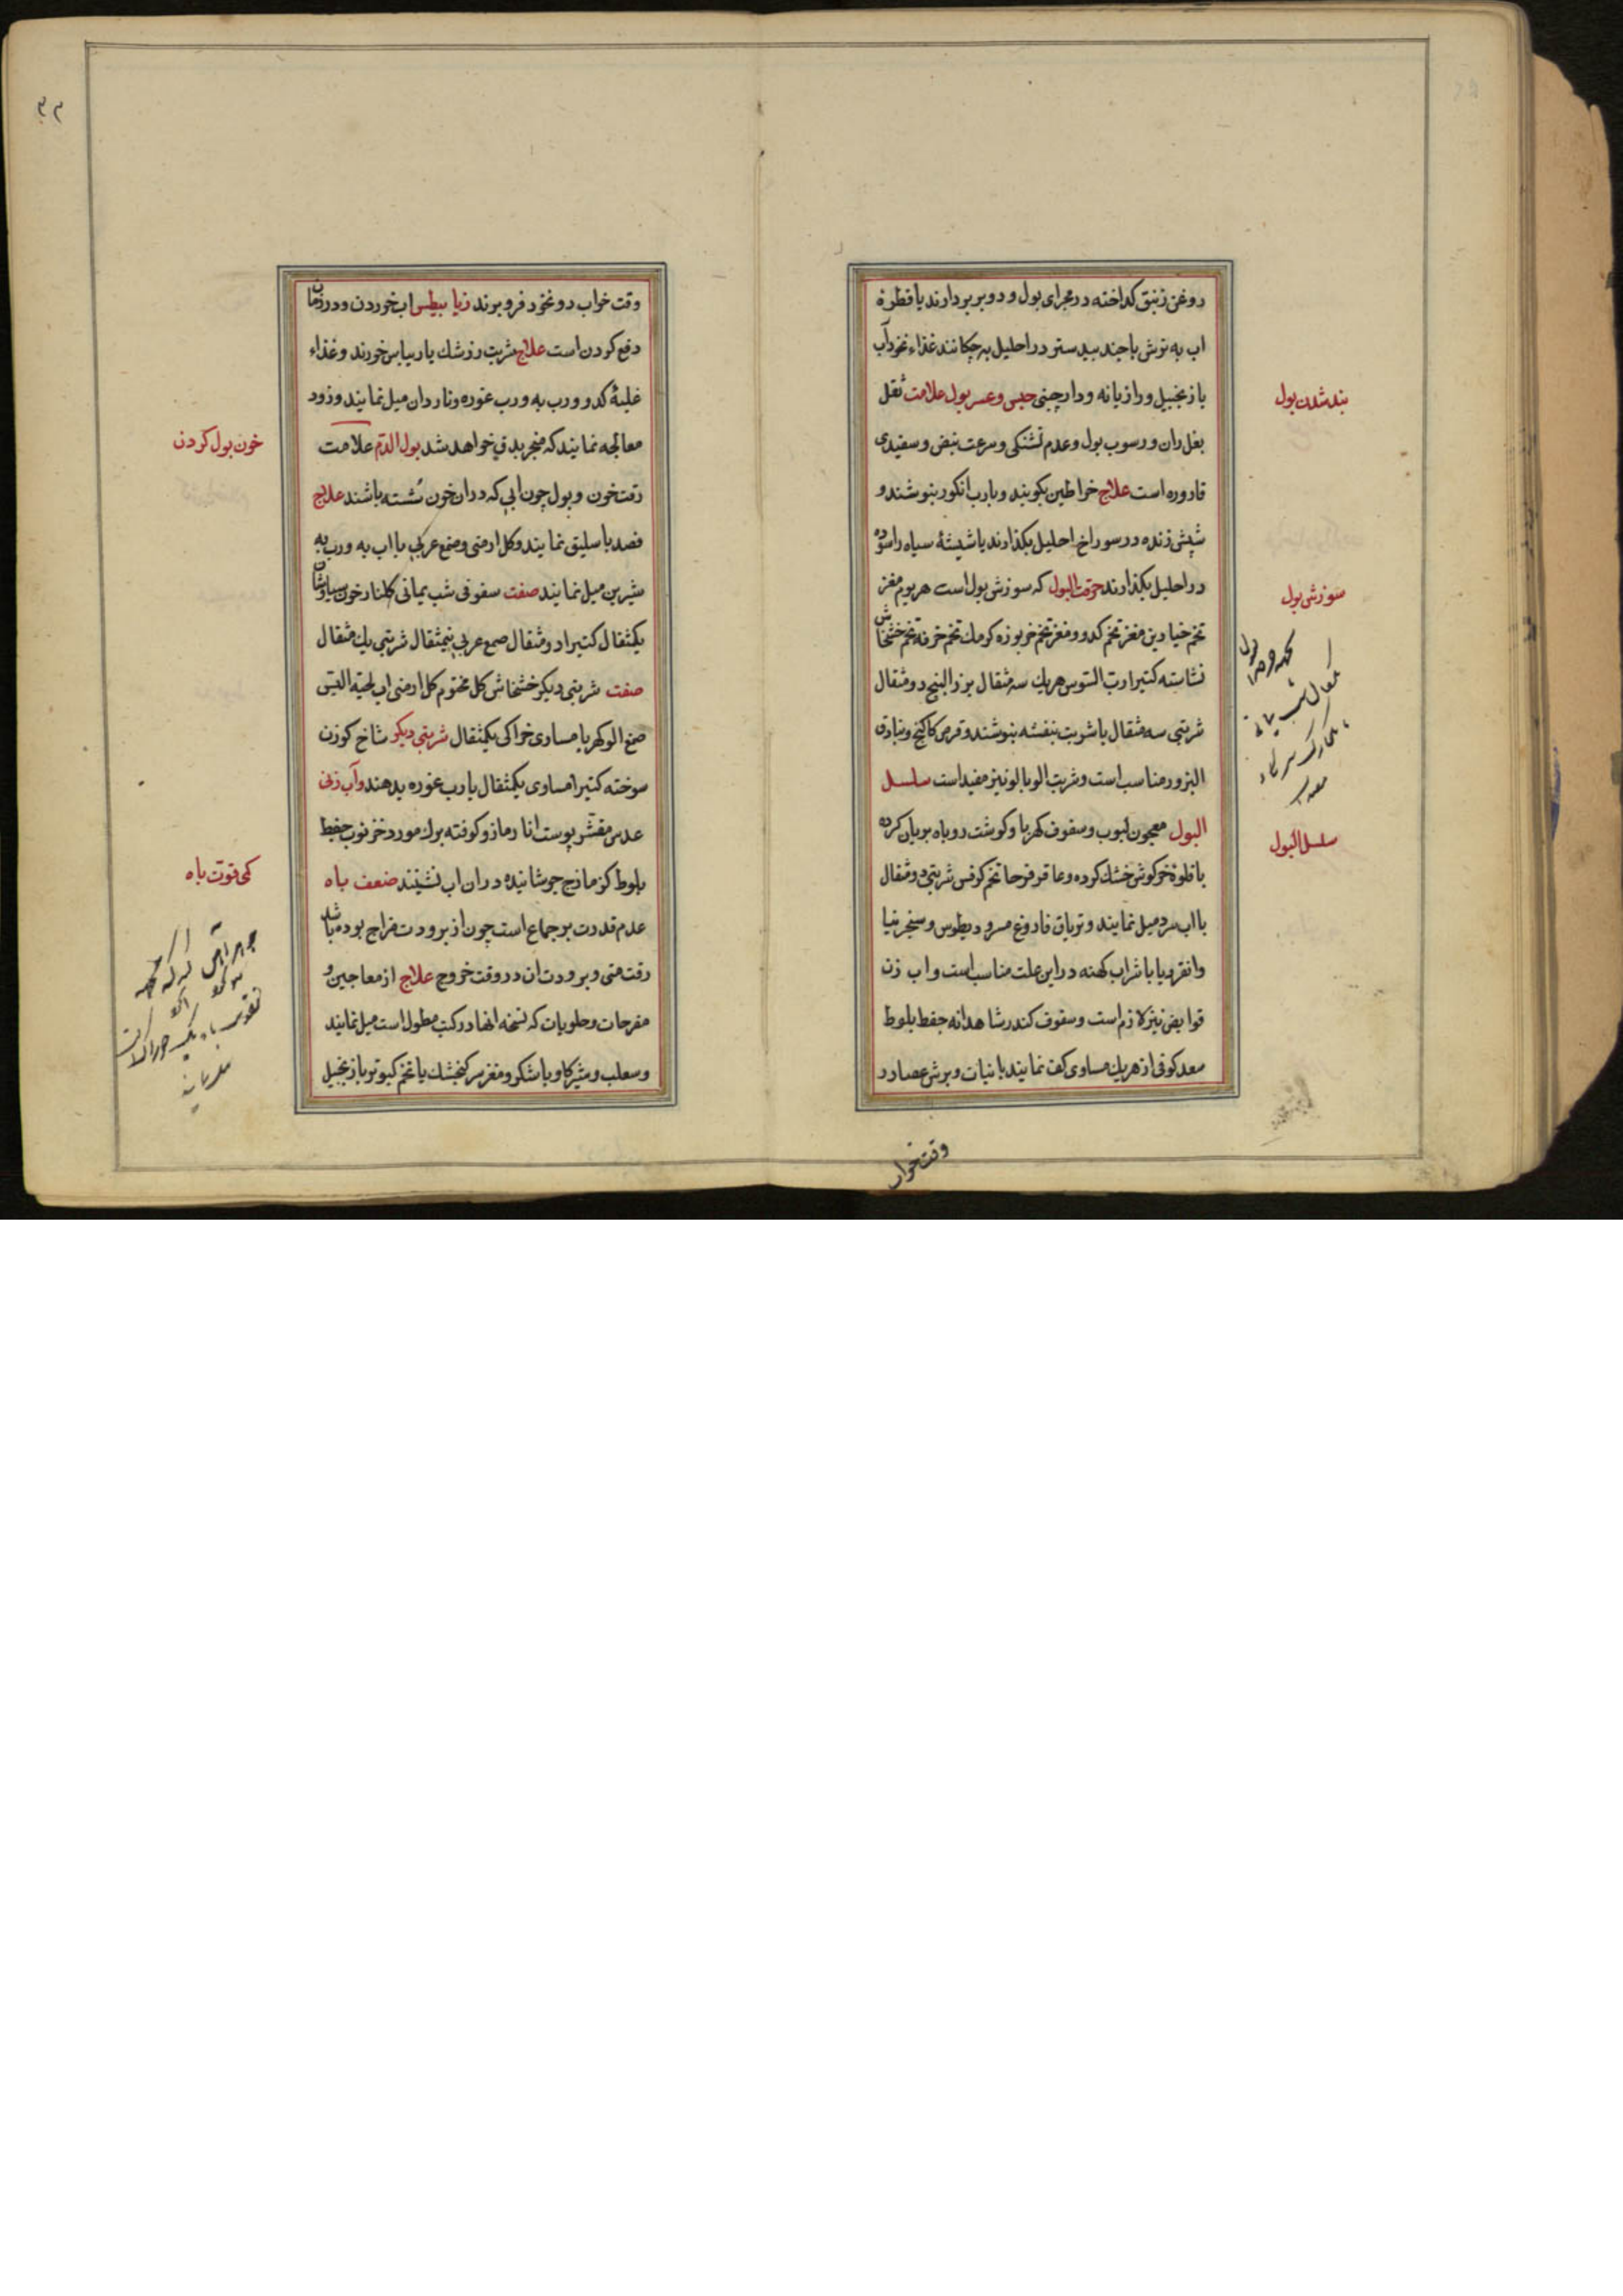 روغن زنبق كداخته در مجراى بول و دو بر بردارند يا قطرهٔ
اب به توش با جند بيدستر در احليل بچكانند غذاء نخوداب
با زنجبيل و رازيانه و دارچينى حبس و عسر بول علامت ثقل
بغل ران و رسوب بول و عدم تشنكى و سرعت نبض و سفيدى
قاروره است علاج خراطين بكوبند و با رب انكور بنوشند و
شپش زنده در سوراخ احليل بكذارند يا شيشهٔ سياه را سوده
در احليل بكذارند حرقت البول كه سوزش بول است هر يوم مغز
تخم خيارين مغز تخم كدو و مغز تخم خربوزه كرمك تخم خرفه تخم خشخاش
نشاسته كتيرا رب السوس هريك سه مثقال بزر البنج دو مثقال
شربتى سه مثقال با شربت بنفشه بنوشند و قرص كاكنج و بنادق
البزور مناسب است و شربت الوبالو نيز مفيد است سلسل
البول معجون لبوب و سفوف كهربا و كوشت روباه بريان كرده
با قلوهٔ خركوش خشك كرده و عاقرقرحا تخم كرفس شربتى دو مثقال
با اب سرد ميل نمايند و ترياق فاروغ مسروديطوس و سنجرنيا
وانقرديا با شراب كهنه در اين علت مناسب است و اب زن
قوابض نيز لازم است و سفوف كندر شاهدانه جفط بلوط
سعد كوفى از هريك مساوى كف نمايند با نبات و برشعصا در
بند شدن بول
سوزش بول
سلسل البول
وقت خواب
وقت خواب دو نخود فرو برند زيابيطس اب خوردن و در زمان
دفع كردن است علاج شربت رزشك يا ريباس خورند و غذاء
غليهٔ كدو و رب به و رب غوره و ناردان ميل نمايند و زود
معالجه نمايند كه منجر بدق خواهد شد بول الدم علامت
رقت خون و بول چون ابى كه در ان خون شسته باشند علاج
فصد باسليق نمايند و كل ارمنى و صمغ عربى با اب به و رب به
شيرين ميل نمايند صفت سفوفى شب يمانى كلنار خون سياوشان
يكمثقال كتيرا دو مثقال صمغ عربى نيمثقال شربتى يك مثقال
صفت شربتى ديكر خشخاش كل مختوم كل ارمنى اب لحية التيس
صمغ الو كهربا مساوى خوراكى يكمثقال شربتى ديكر شاخ كوزن
سوخته كتيرا مساوى يكمثقال با رب غوره بدهند و آب زنى
عدس مقشر پوست انار مازو كوفته برك مورد خرنوب جفط
بلوط كزمازج جوشانيده در ان اب نشينند ضعف باه
عدم قدرت بر جماع است چون از برودت مزاج بوده باشد
رقت منى و برودت ان در وقت خروج علاج از معاجين و
مفرحات و حلويات كه نسخه انها در كتب مطول است ميل نمايند
و سعلب و شير كاو با شكر و مغز سر كنجشك يا تخم كبوتر با زنجبيل
خون بول كردن
كمى قوت باه